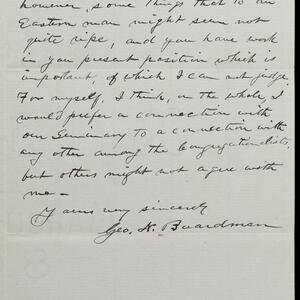 however, some things that to an
Eastern man might seem not
quite ripe, and you have work
in your present position which is
important, of which I can not judge.
For myself, I think, on the whole, I
would prefer a connection with
our Seminary to a connection with
any other among the Congregationalists,
but others might not agree with
me –
Yours very sincerely
Geo. N. Boardman